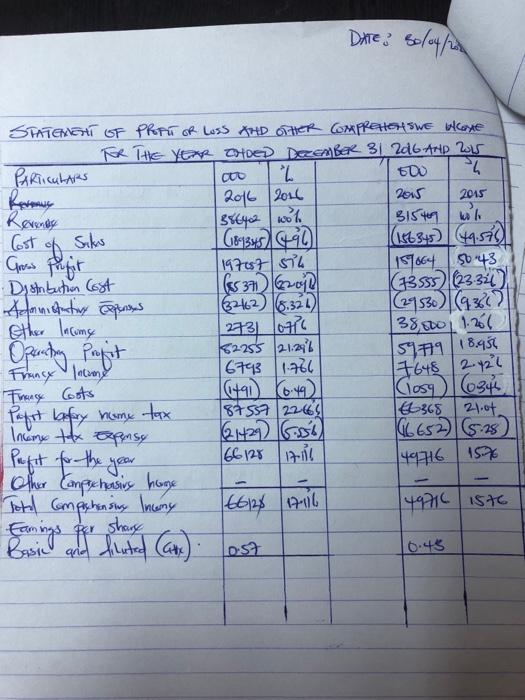 DATE: 30/04/20
STATEMENT OF PROFIT OR LOSS AND OTHER COMPREHENSIVE INCOME
FOR THE YEAR ENDED DECEMBER 31 2016 AND 2015
PARTICULARS 000 % 000 %
Revenue 2016 2016 2015 2015
Revenue 386402 100% 315409 100%
Cost of Sales (189345) (49%) (156345) (49.57%)
Gross Profit 197057 51% 159064 50.43
Distribution Cost (85371) (22.09%) (73555) (23.32%)
Administrative Expenses (32162) (8.32%) (29530) (9.36%)
Other Income 2731 0.7% 38,000 1.2%
Operating Profit 82255 21.29% 59779 18.95%
Finance Income 6793 1.76% 7648 2.42%
Finance Costs (1491) (0.49) (1059) (0.34%)
Profit before income tax 87557 22.66% 66368 21.04
Income tax expense (21429) (5.55%) (16652) (5.28)
Profit for the year 66128 17.11% 49716 15.76
Other Comprehensive Income - - - -
Total Comprehensive Income 66128 17.11% 49716 15.76
Earnings per share
Basic and diluted 0.57 0.43